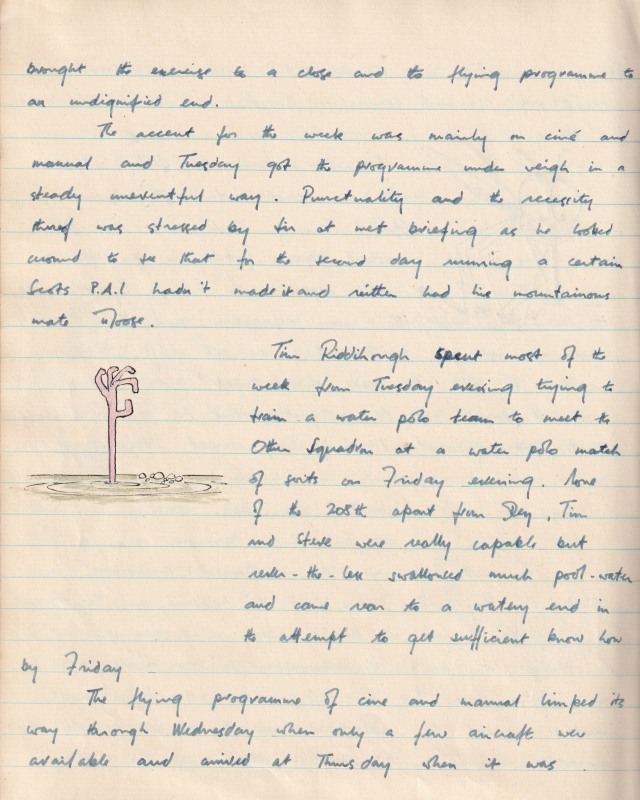 brought the exercise to a close and the flying programme to
an undignified end.
The accent for the week was mainly on ciné and
manual and Tuesday got the programme under weigh in a
steady uneventful way. Punctuality and the necessity
thereof was stressed by Sir at met briefing as he looked
around to see that for the second day running a certain
Scots P.A.I hadn't made it and neither had his mountainous
mate Moose.
Tim Riddihough spent most of the
week from Tuesday evening trying to
train a water polo team to meet the
Other Squadron at a water polo match
of sorts on Friday evening. None
of the 208th apart from , Tim
and Steve were really capable but
never-the-less swallowed much pool-water
and came near to a watery end in
the attempt to get sufficient know how
by Friday
The flying programme of cine and manual limped its
way through Wednesday when only a few aircraft were
available and arrived at Thursday when it was